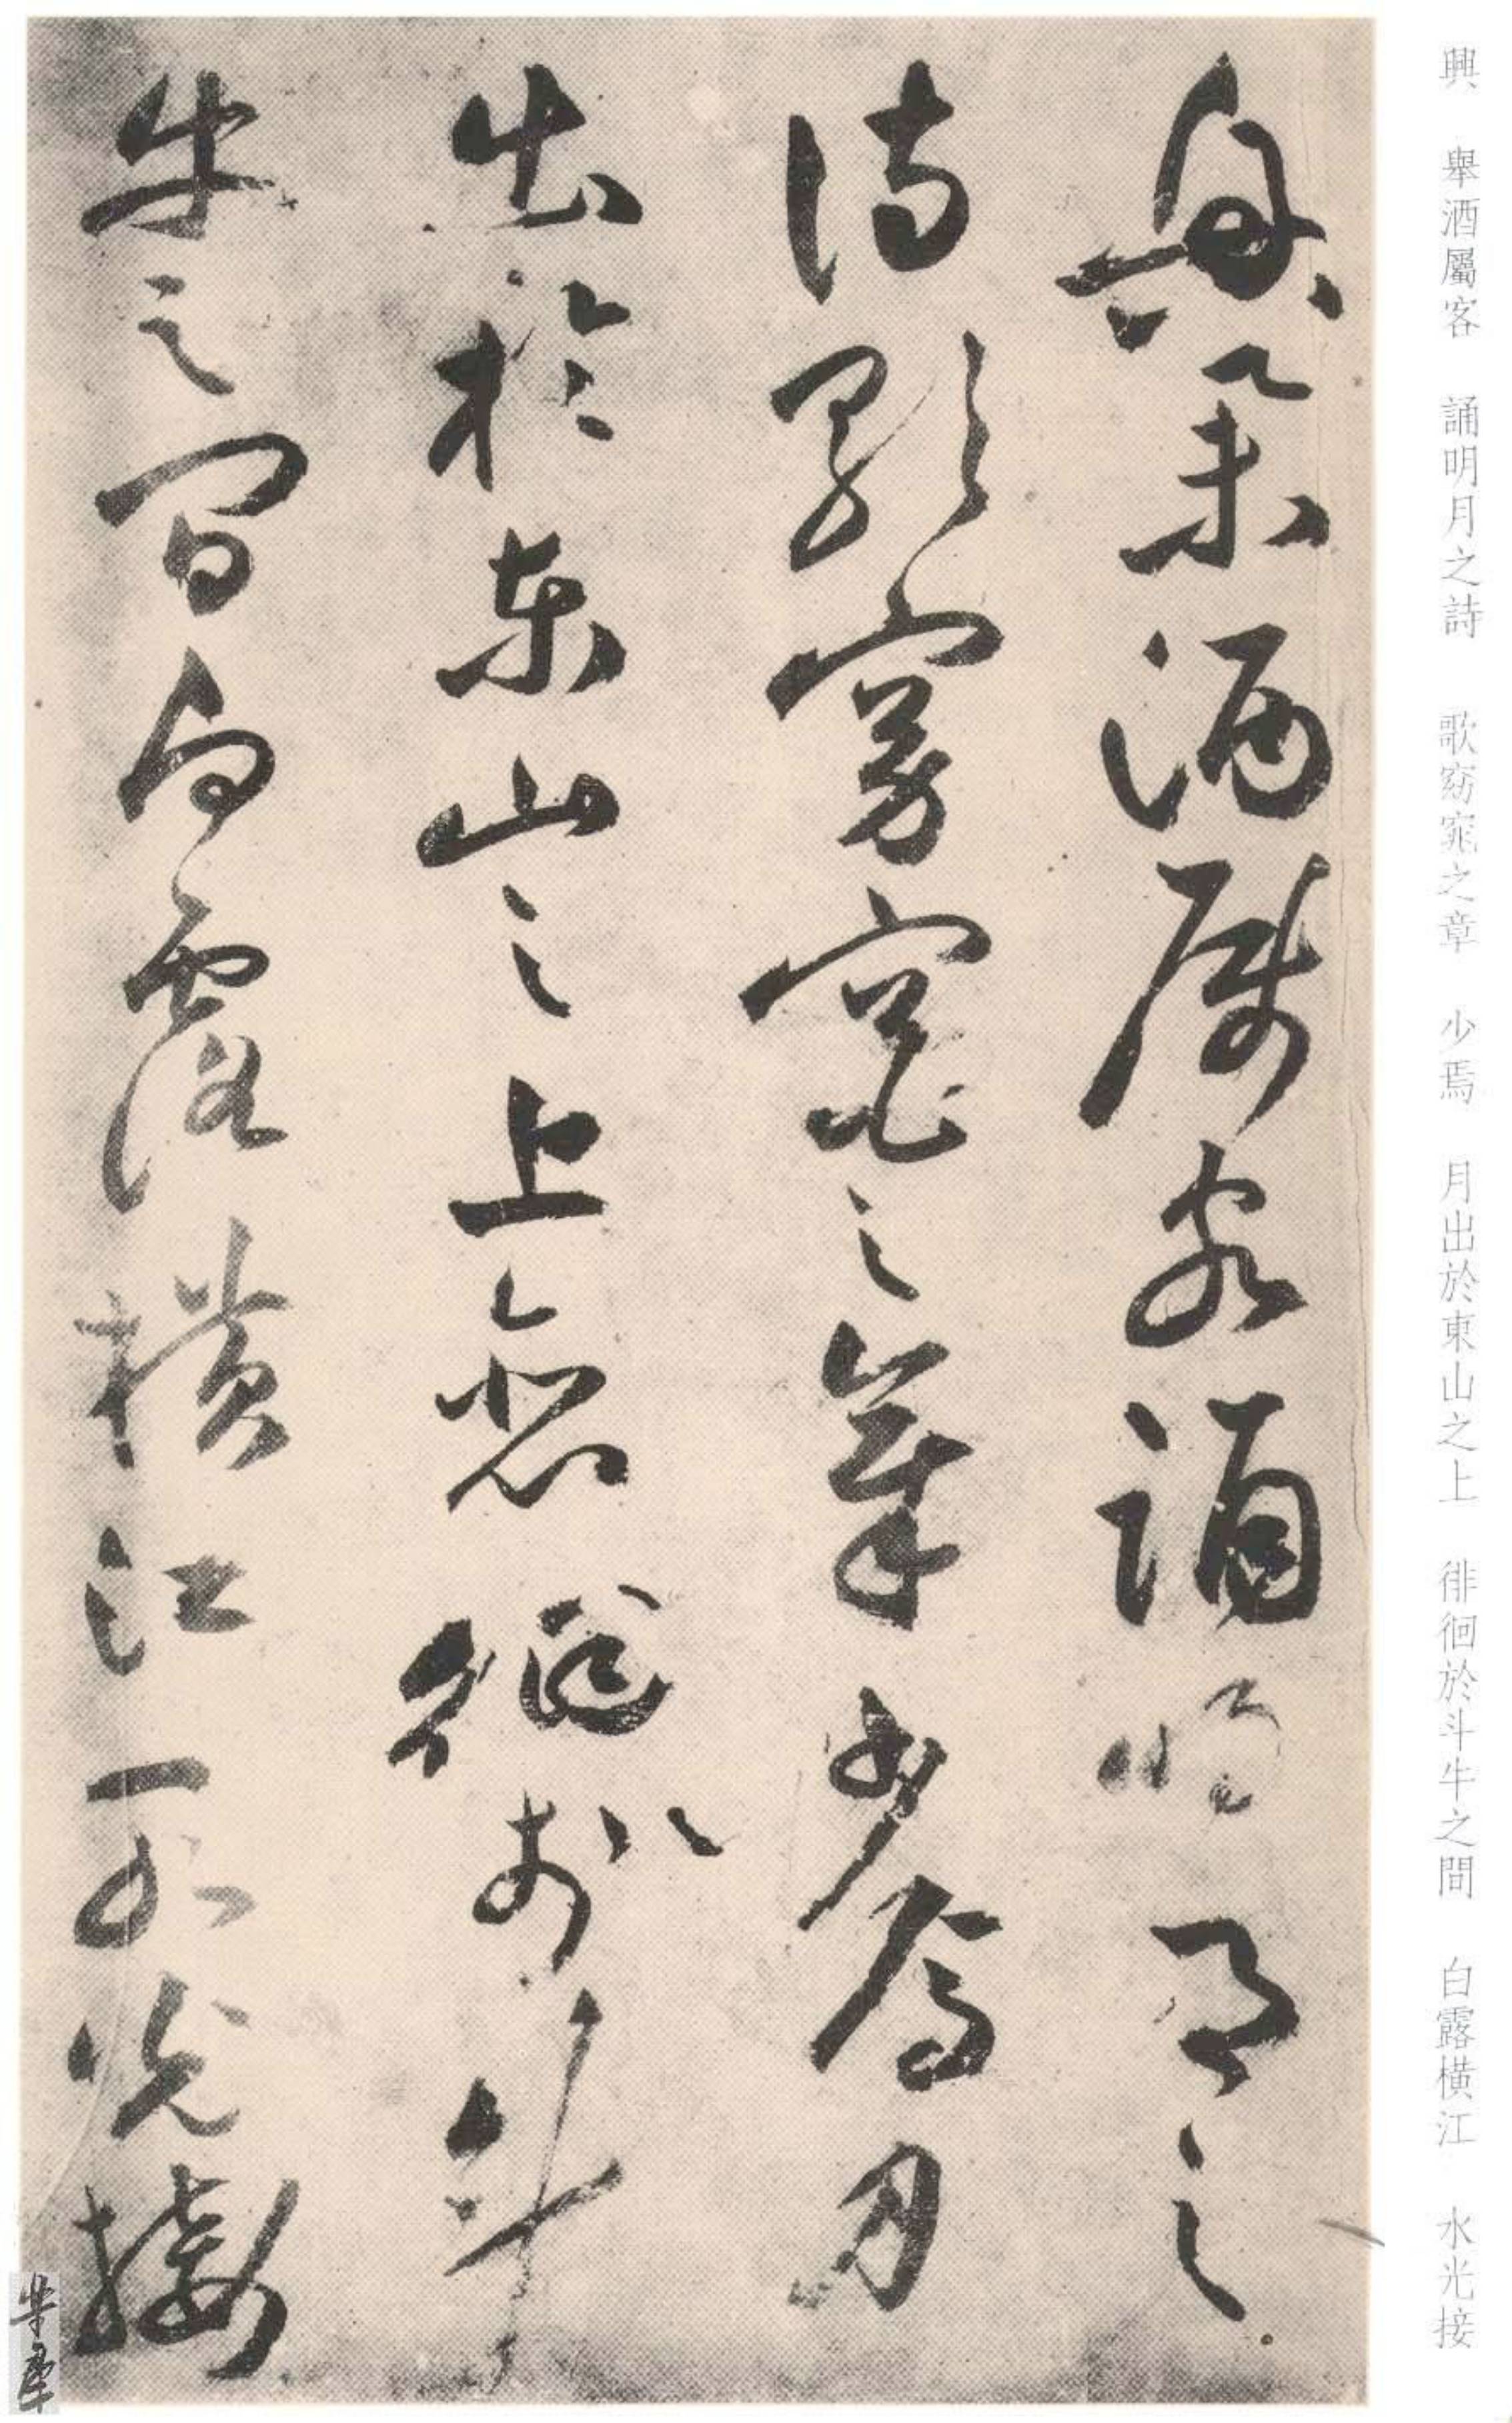 興 舉酒屬客 誦明月之詩 歌窈窕之章 少焉 月出於東山之上 徘徊於斗牛之間 白露橫江 水光接
興舉酒屬客誦明月之
詩歌窈窕之章少焉月
出於東山之上徘徊於斗
牛之間白露橫江水光接